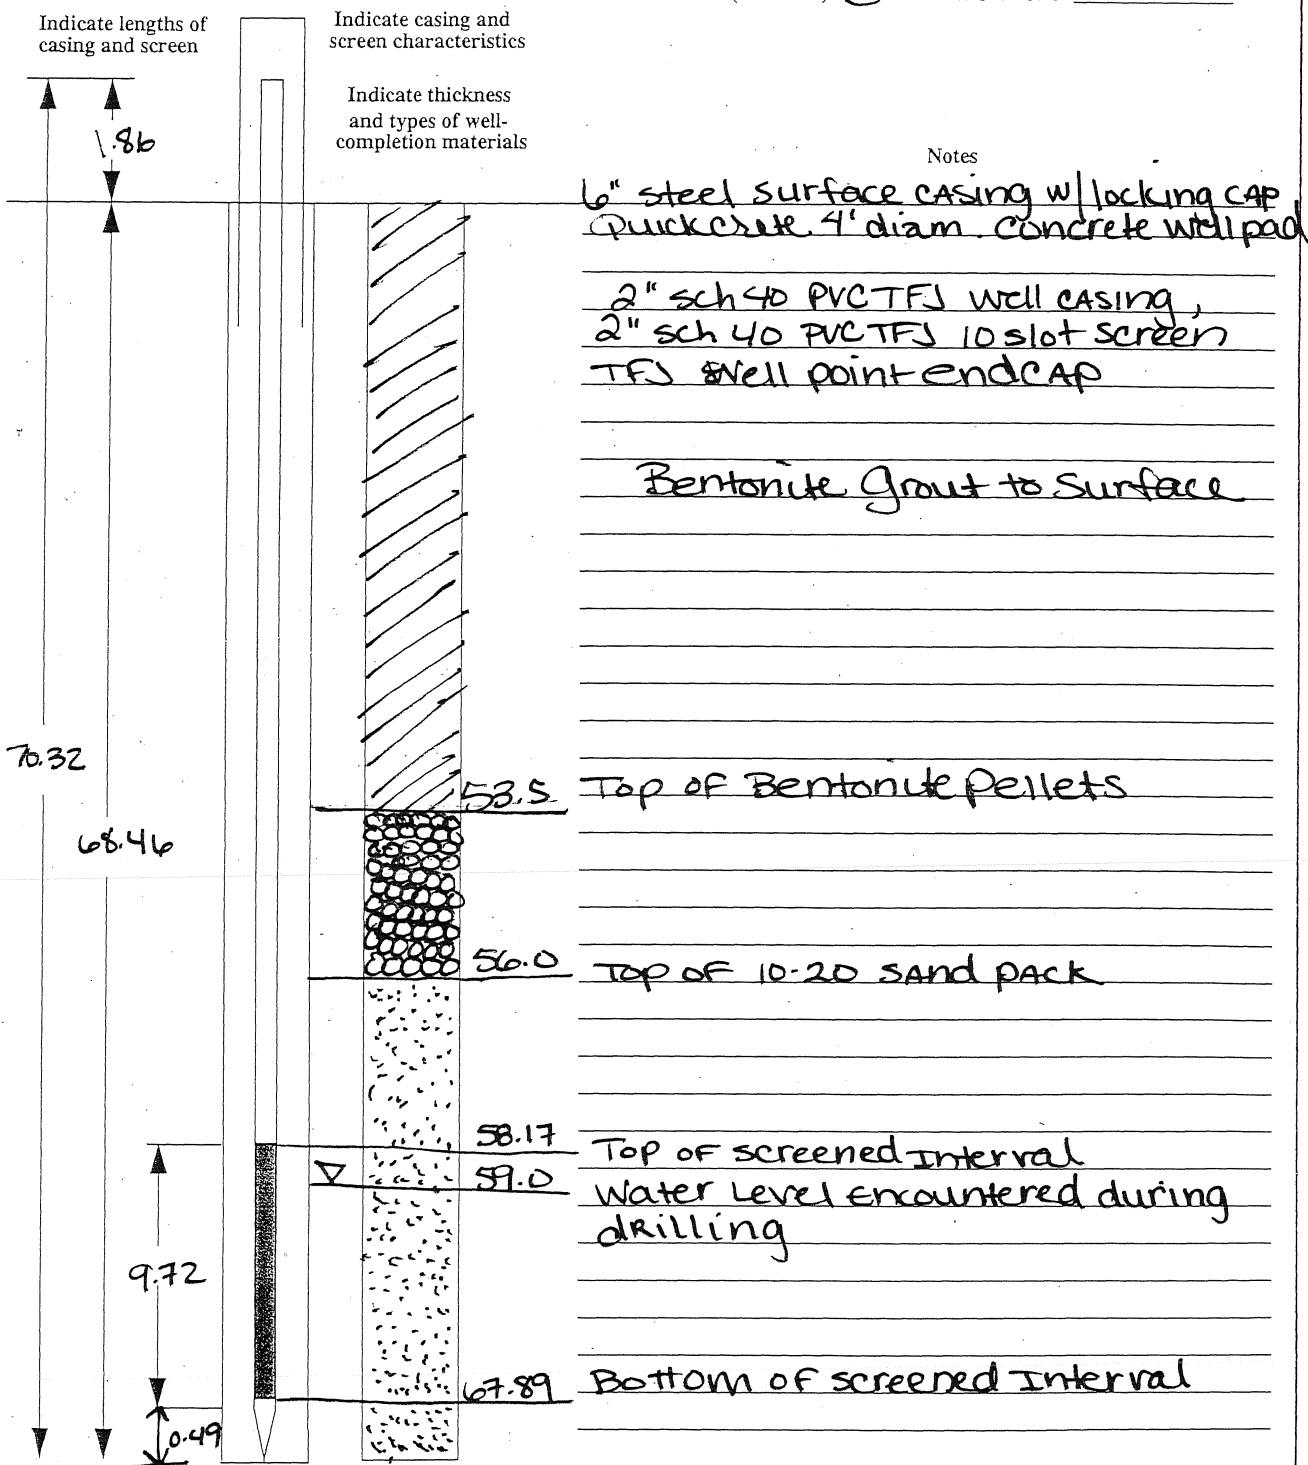 Indicate lengths of
casing and screen
Indicate casing and
screen characteristics
Indicate thickness
and types of well-
completion materials
1.86
Notes
6" steel surface casing w/locking cap
Quickcrete 4' diam. concrete well pad
2" sch 40 PVC TFJ well casing,
2" sch 40 PVC TFJ 10 slot screen
TFJ well point endcap
Bentonite Grout to Surface
70.32
53.5 Top of Bentonite Pellets
68.46
56.0 Top of 10-20 sand pack
58.17 Top of screened Interval
59.0 Water Level Encountered during
drilling
9.72
67.89 Bottom of screened Interval
0.49